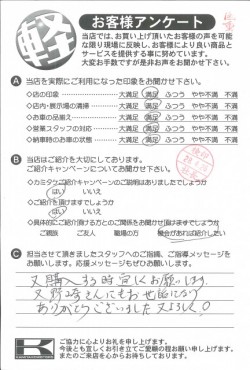 軽
お客様アンケート
当店では、お買い上げ頂いたお客様の声を可能
な限り現場に反映し、お客様により良い商品と
サービスを提供する事に努めています。
大変お手数ですが是非お声をお聞かせ下さい。
A 当店を実際にご利用になった印象をお聞かせ下さい。
◇店の印象 大満足 満足 ふつう やや不満 不満
◇店内・展示場の清掃 大満足 満足 ふつう やや不満 不満
◇お車の品揃え 大満足 満足 ふつう やや不満 不満
◇営業スタッフの対応 大満足 満足 ふつう やや不満 不満
◇納車時のお車の状態 大満足 満足 ふつう やや不満 不満
B 当店はご紹介を大切にしております。
ご紹介キャンペーンについてお聞かせ下さい。
◇カミタケご紹介キャンペーンのご説明はありましたでしょうか
はい いいえ
◇ご紹介を頂けますでしょうか
はい いいえ
◇具体的にご紹介頂ける方とのご関係をお聞かせ頂けますでしょうか
ご親族 ご友人 職場の方 機会があれば紹介したい
C 担当させて頂きましたスタッフへのご指摘、ご指導メッセージを
お願いします。応援メッセージもぜひお願いします。
又購入する時宜しくお願いします。
又野崎さんにもお世話になり
ありがとうございました又よろしく!
K
ご協力に心よりお礼を申し上げます。
今後とも宜しくお引き立てご愛顧の程お願い申し上げます。
またのご来店を心からお待ちしております。